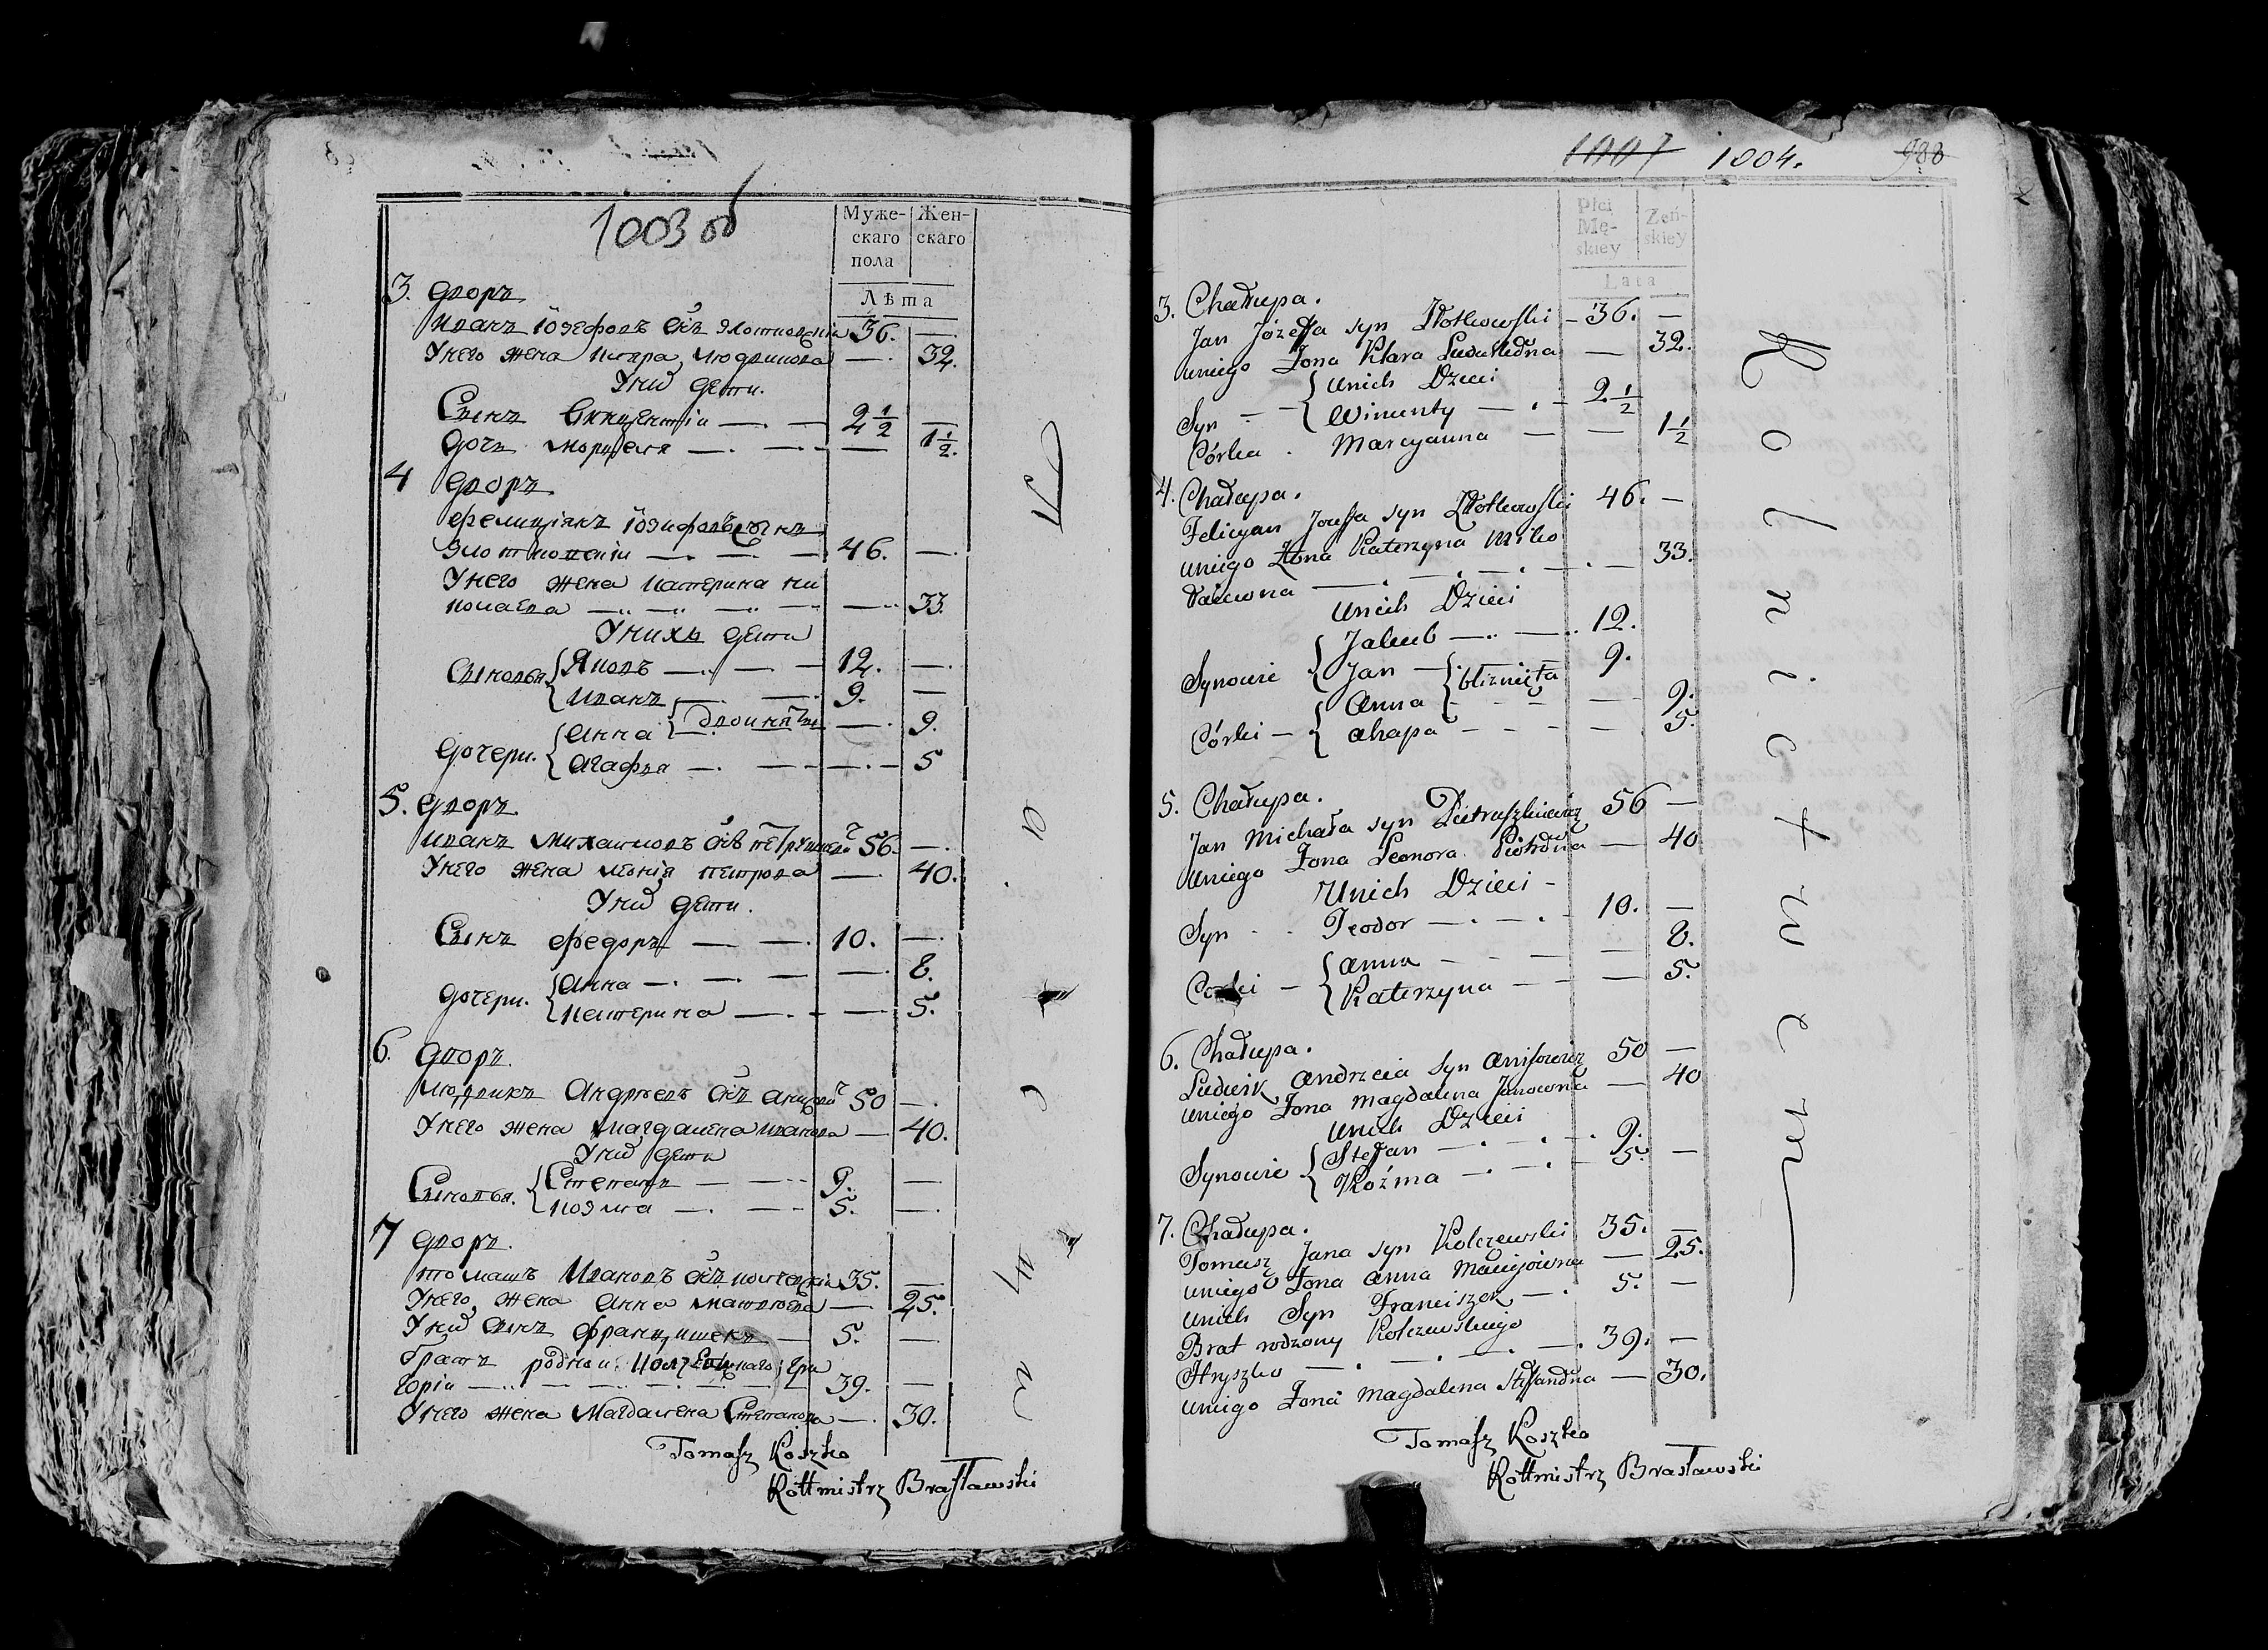 1003 об
Муже-
скаго
пола
Жен-
скаго
Лѣта
3. Дворъ
Иванъ Іозефовъ Сн҃ъ Злотковскій 36. —
У него жена Клара Людвикова — 32.
У них дети.
Сынъ Викцентій — 2 1/2 —
Дочь Марцеля — 1 1/2.
4 Дворъ
Фелиціянъ Іозифовъ сынъ
Злотковскій — 46. —
У него жена Катерина Ни
колаева — 33.
У нихъ дети
Сыновья { Яковъ — 12. —
Иванъ — 9. —
Дочери. { Анна { двоинята — 9.
Агафья — 5
5. Дворъ
Иванъ Михайловъ Сн҃ъ 56. —
У него жена Петрова — 40.
У них дети.
Сынъ Федоръ — 10. —
Дочери. { Анна — 8.
Катерина — 5.
6. Дворъ
Людвикъ Андреевъ Сн҃ъ 50 —
У него жена Магдалена Иванова — 40.
У них дети
Сыновья. { Степанъ — 9. —
Козма — 5. —
7 Дворъ.
Томашъ Ивановъ Сн҃ъ Колчевскій 35. —
У него жена Анна Матвѣева — 25.
У них Сынъ Францишекъ — 5. —
Братъ родной Колчевскаго Гри
горій — 39. —
У него жена Магдалена Степанова — 30.
Tomasz Koszko
Rottmistrz Brasławski
1007 1004. 988
Płci
Mę-
skiey
Żeń-
skiey
Lata
3. Chałupa.
Jan Józefa syn Złotkowski — 36. —
u niego Żona Klara Ludwikówna — 32.
Syn - - { u nich Dzieci
Wincenty — 2 1/2
Córka . Marcyanna — — 1 1/2
4. Chałupa.
Felicyan Józefa syn Złotkowski 46. —
u niego Żona Katerzyna Miko
łaiewna — 33.
u nich Dzieci
Synowie { Jakub — 12.
Jan — { bliznięta 9.
Córki — { Anna — 9.
Ahapa — 5.
5. Chałupa.
Jan Michała syn Pietruszkiewicz 56 —
u niego Żona Leonora Piotrówna — 40
U nich Dzieci -
Syn - - Teodor — 10. —
Córki — { Anna — 8.
Katerzyna — 5.
6. Chałupa.
Ludwik Andrzeia syn Anisowicz 50 —
u niego Żona Magdalena Janowna — 40
u nich Dzieci
Synowie { Stefan — 9.
Koźma — 5. —
7. Chałupa.
Tomasz Jana syn Kolczewski 35. —
u niego Żona Anna Maciejowna — 25.
u nich Syn Franciszek — 5. —
Brat rodzony Kolczewskiego
Hryszko — 39. —
u niego Żona Magdalena Stefanówna — 30.
Rolnictwem
Tomasz Koszko
Rottmistrz Brasławski